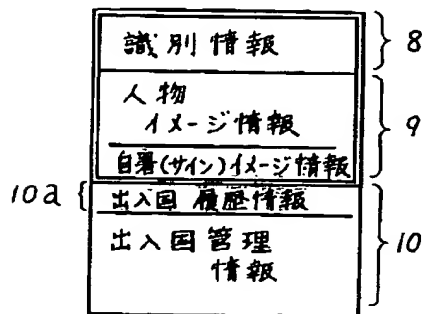 識別情報
8
人物
イメージ情報
9
自署(サイン)イメージ情報
10a
出入国 履歴情報
出入国管理
情報
10